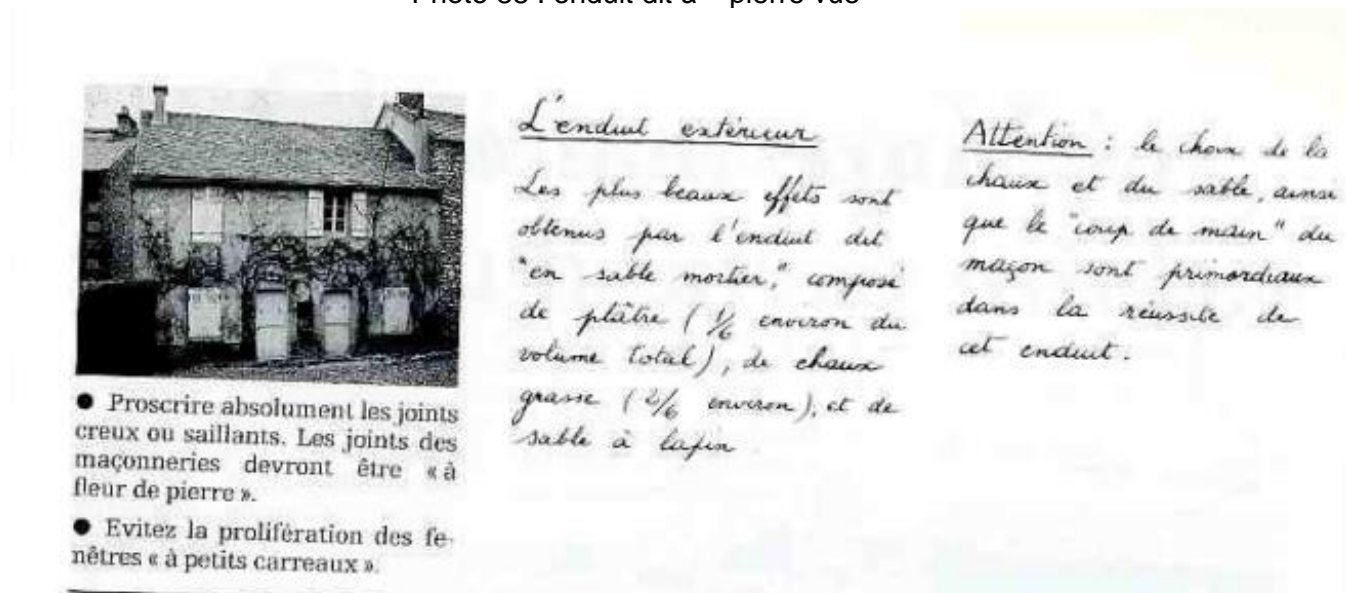 Photo de l'enduit dit à " pierre vue "
● Proscrire absolument les joints
creux ou saillants. Les joints des
maçonneries devront être « à
fleur de pierre ».
● Evitez la prolifération des fe-
nêtres « à petits carreaux ».
L'enduit extérieur
Les plus beaux effets sont
obtenus par l'enduit dit
"en sable mortier," composé
de plâtre (1/6 environ du
volume total), de chaux
grasse (2/6 environ), et de
sable à lapin
Attention : le choix de la
chaux et du sable, ainsi
que le "coup de main" du
maçon sont primordiaux
dans la réussite de
cet enduit.